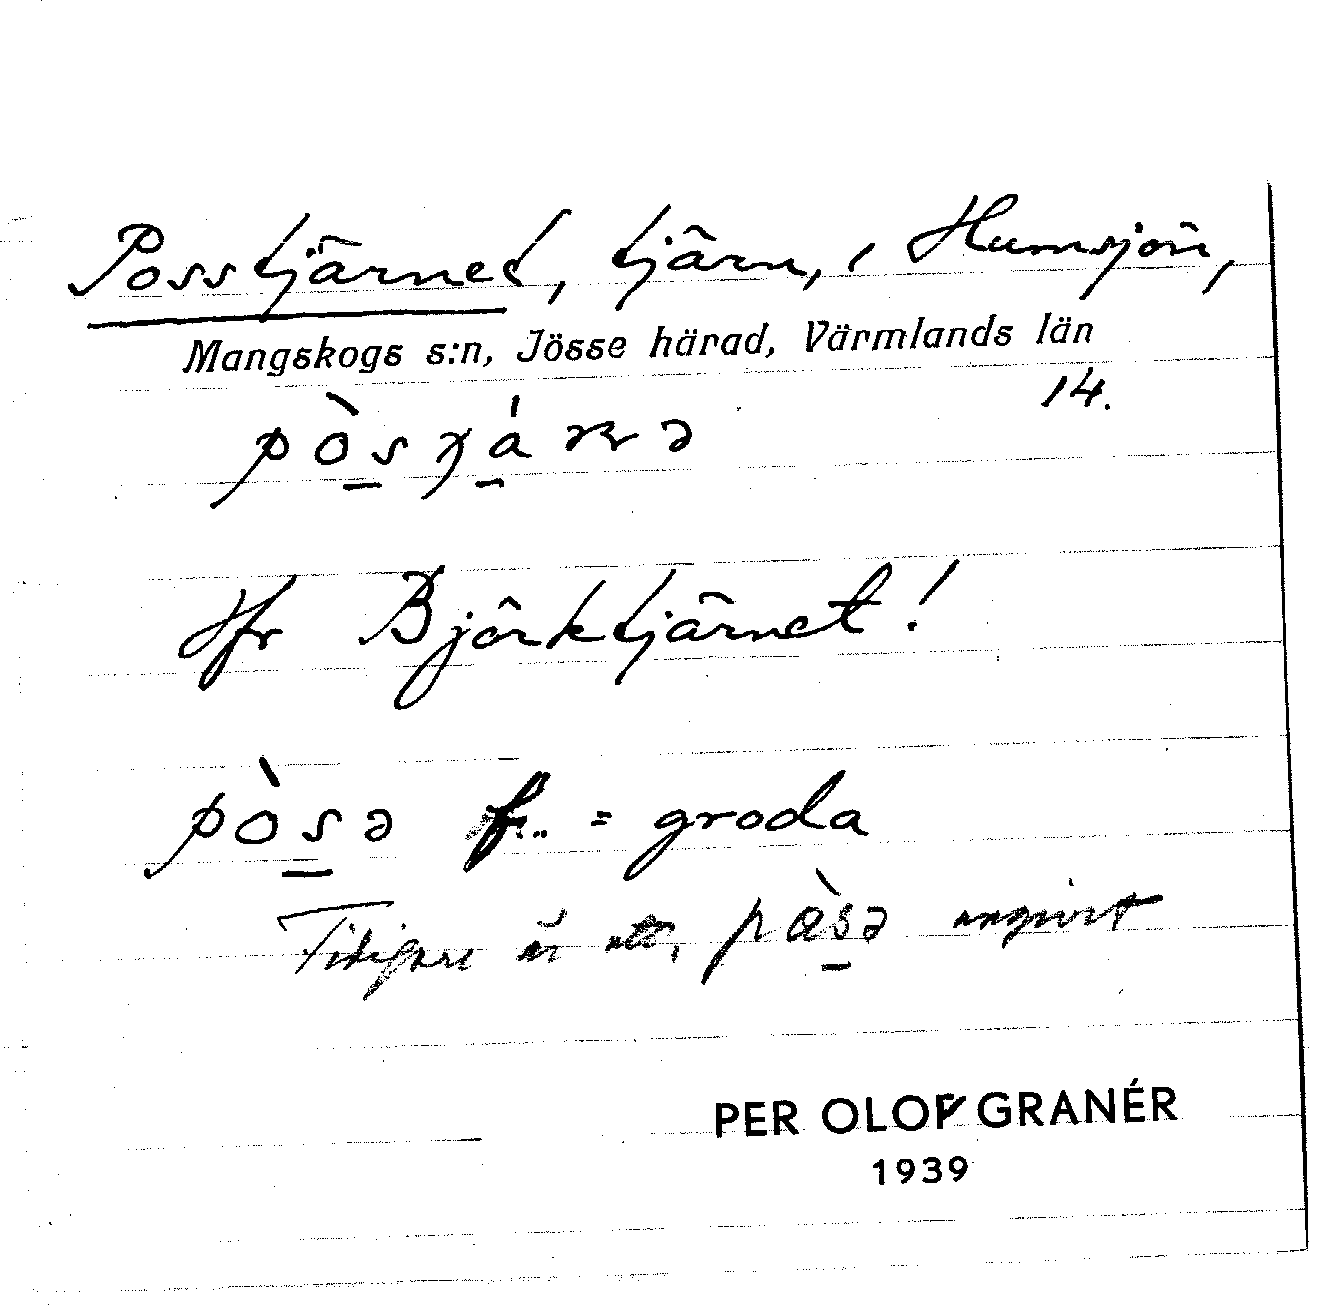 Posstjärnet, tjärn, i Humsjön,
Mangskogs s:n, Jösse härad, Värmlands län
14.
pòs
Jfr Björktjärnet!
pòsə f. = groda
Tidigare är ett, pæ̀sə angivet
PER OLOF GRANÉR
1939